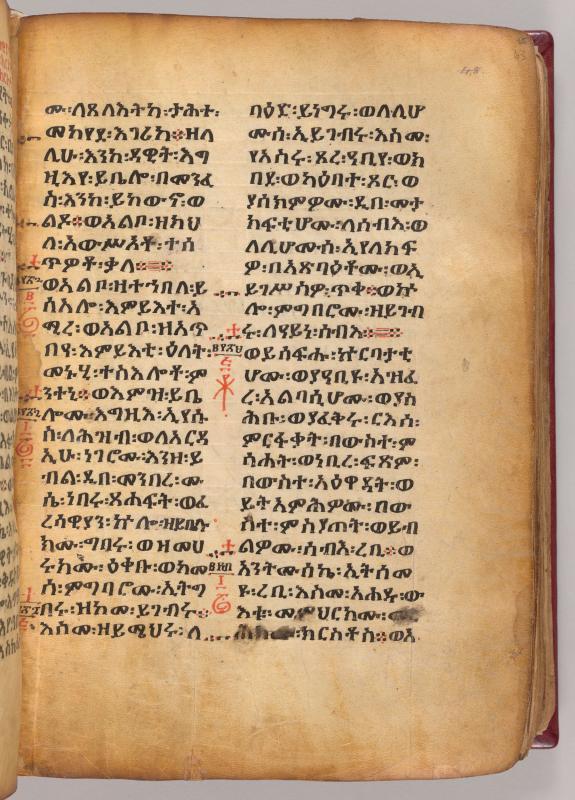 ሙ፡ለጸላእትከ፡ታሕተ፡
መከየደ፡እገሪከ፨ዘለ
ሊሁ፡እንከ፡ዳዊት፡እግ
ዚእየ፡ይቤሎ፡በመንፈ
ስ፡እንከ፡ይከውኖ፡ወ
ልዶ፨ወአልቦ፡ዘክህ
ለ፡አውሥኦቶ፡ተሰ
ጥዎቶ፡ቃለ፨
ወአልቦ፡ዘተኀበለ፡ይ
ሰአሎ፡እምይእተ፡አ
ሚረ፡ወአልቦ፡ዘአጥ
በየ፡እምይእቲ፡ዕለት፡
መኑሂ፡ተስእሎቶ፡ም
ንተኒ፨ወእምዝ፡ይቤ
ሎሙ፡እግዚእ፡ኢየሱ
ስ፡ለሕዝብ፡ወለአርዳ
ኢሁ፡ነገሮሙ፡እንዘ፡ይ
ብል፡ዲበ፡መንበረ፡ሙ
ሴ፡ነበሩ፡ጸሐፍት፡ወፈ
ሪሳዊያን፡ኵሎ፡ዘይቤሉ
ክሙ፡ግበሩ፡ወዘመሀ
ሩክሙ፡ዕቀቡ፡ወከመ
ሰ፡ምግባሮሙ፡ኢትግ
በሩ፡ዝከመ፡ይገብሩ፨
እስመ፡ዘይሜህሩ፡ለ
ባዕድ፡ይነግሩ፡ወለሊሆ
ሙሰ፡ኢይገብሩ፡እስመ፡
የአስሩ፡ጾረ፡ዓቢየ፡ወክ
በደ፡ወካዕበተ፡ጾር፡ወ
ያሰክምዎሙ፡ዲበ፡መታ
ክፍቲሆሙ፡ለሰብእ፡ወ
ለሊሆሙሰ፡ኢየለክፍ
ዎ፡በአጽባዕቶሙ፡ወኢ
ይገሥስዎ፡ጥቀ፨ወኵ
ሎ፡ምግባሮሙ፡ዘይገብ
ሩ፡ለዓይነ፡ሰብእ፨
ወይሰፍሑ፡
ሆሙ፡ወያዓቢዩ፡አዝፈ
ረ፡አልባሲሆሙ፡ወያስ
ሕቡ፡ወያፈቅሩ፡ርእሰ፡
ምርፋቃት፡በውስተ፡ም
ሳሐት፡ወነቢረ፡ፍጽም፡
በውስተ፡አዕዋዳት፡ወ
ይትአምሕዎሙ፡በው
ስተ፡ምስያጠት፡ወይብ
ልዎሙ፡ሰብእ፡ረቢ፨ወ
አንትሙሰኬ፡ኢትሰመ
ዩ፡ረቢ፡እስመ፡አሐዱ፡ው
እቱ፡መምህርክሙ፡
ክርስቶስ፨ወአ